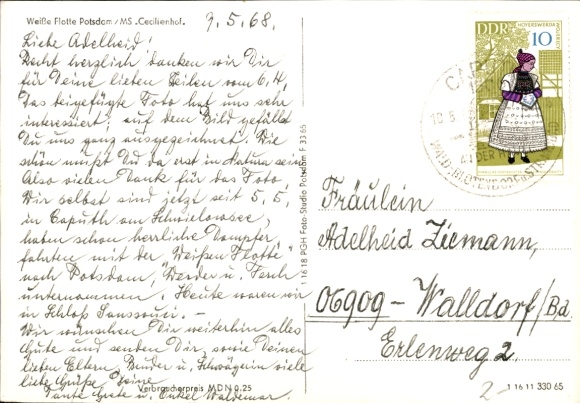 Weiße Flotte Potsdam / MS „Cecilienhof"
9.5.68.
Liebe Adelheid!
Recht herzlich danken wir Dir
für Deine lieben Zeilen vom 6,4,
Das beigefügte Foto hat uns sehr
interessiert; auf dem Bild gefällst
Du uns ganz ausgezeichnet. Wie
schön mußt Du da erst in Natura sein
Also vielen Dank für das Foto
Wir selbst sind jetzt seit 5,5,
in Caputh am Schwielowsee,
haben schon herrliche Dampfer
fahrten mit der "Weißen Flotte"
nach Potsdam, Werder u. Ferch
unternommen. Heute waren wir
in Schloß Sanssouci. –
Wir wünschen Dir weiterhin alles
Gute und senden Dir sowie Deinen
lieben Eltern, Bruder u. Schwägerin viele
liebe Grüße Deine
Tante Grete u. Onkel Waldemar.
Verbraucherpreis MDN 0.25
1 16 18 PGH Foto-Studio Potsdam F 33 65
DDR
HOYERSWERDA
10
AN DER H
Fräulein
Adelheid Ziemann,
06909 – Walldorf/Bd
Erlenweg 2
2-
1 16 11 330 65